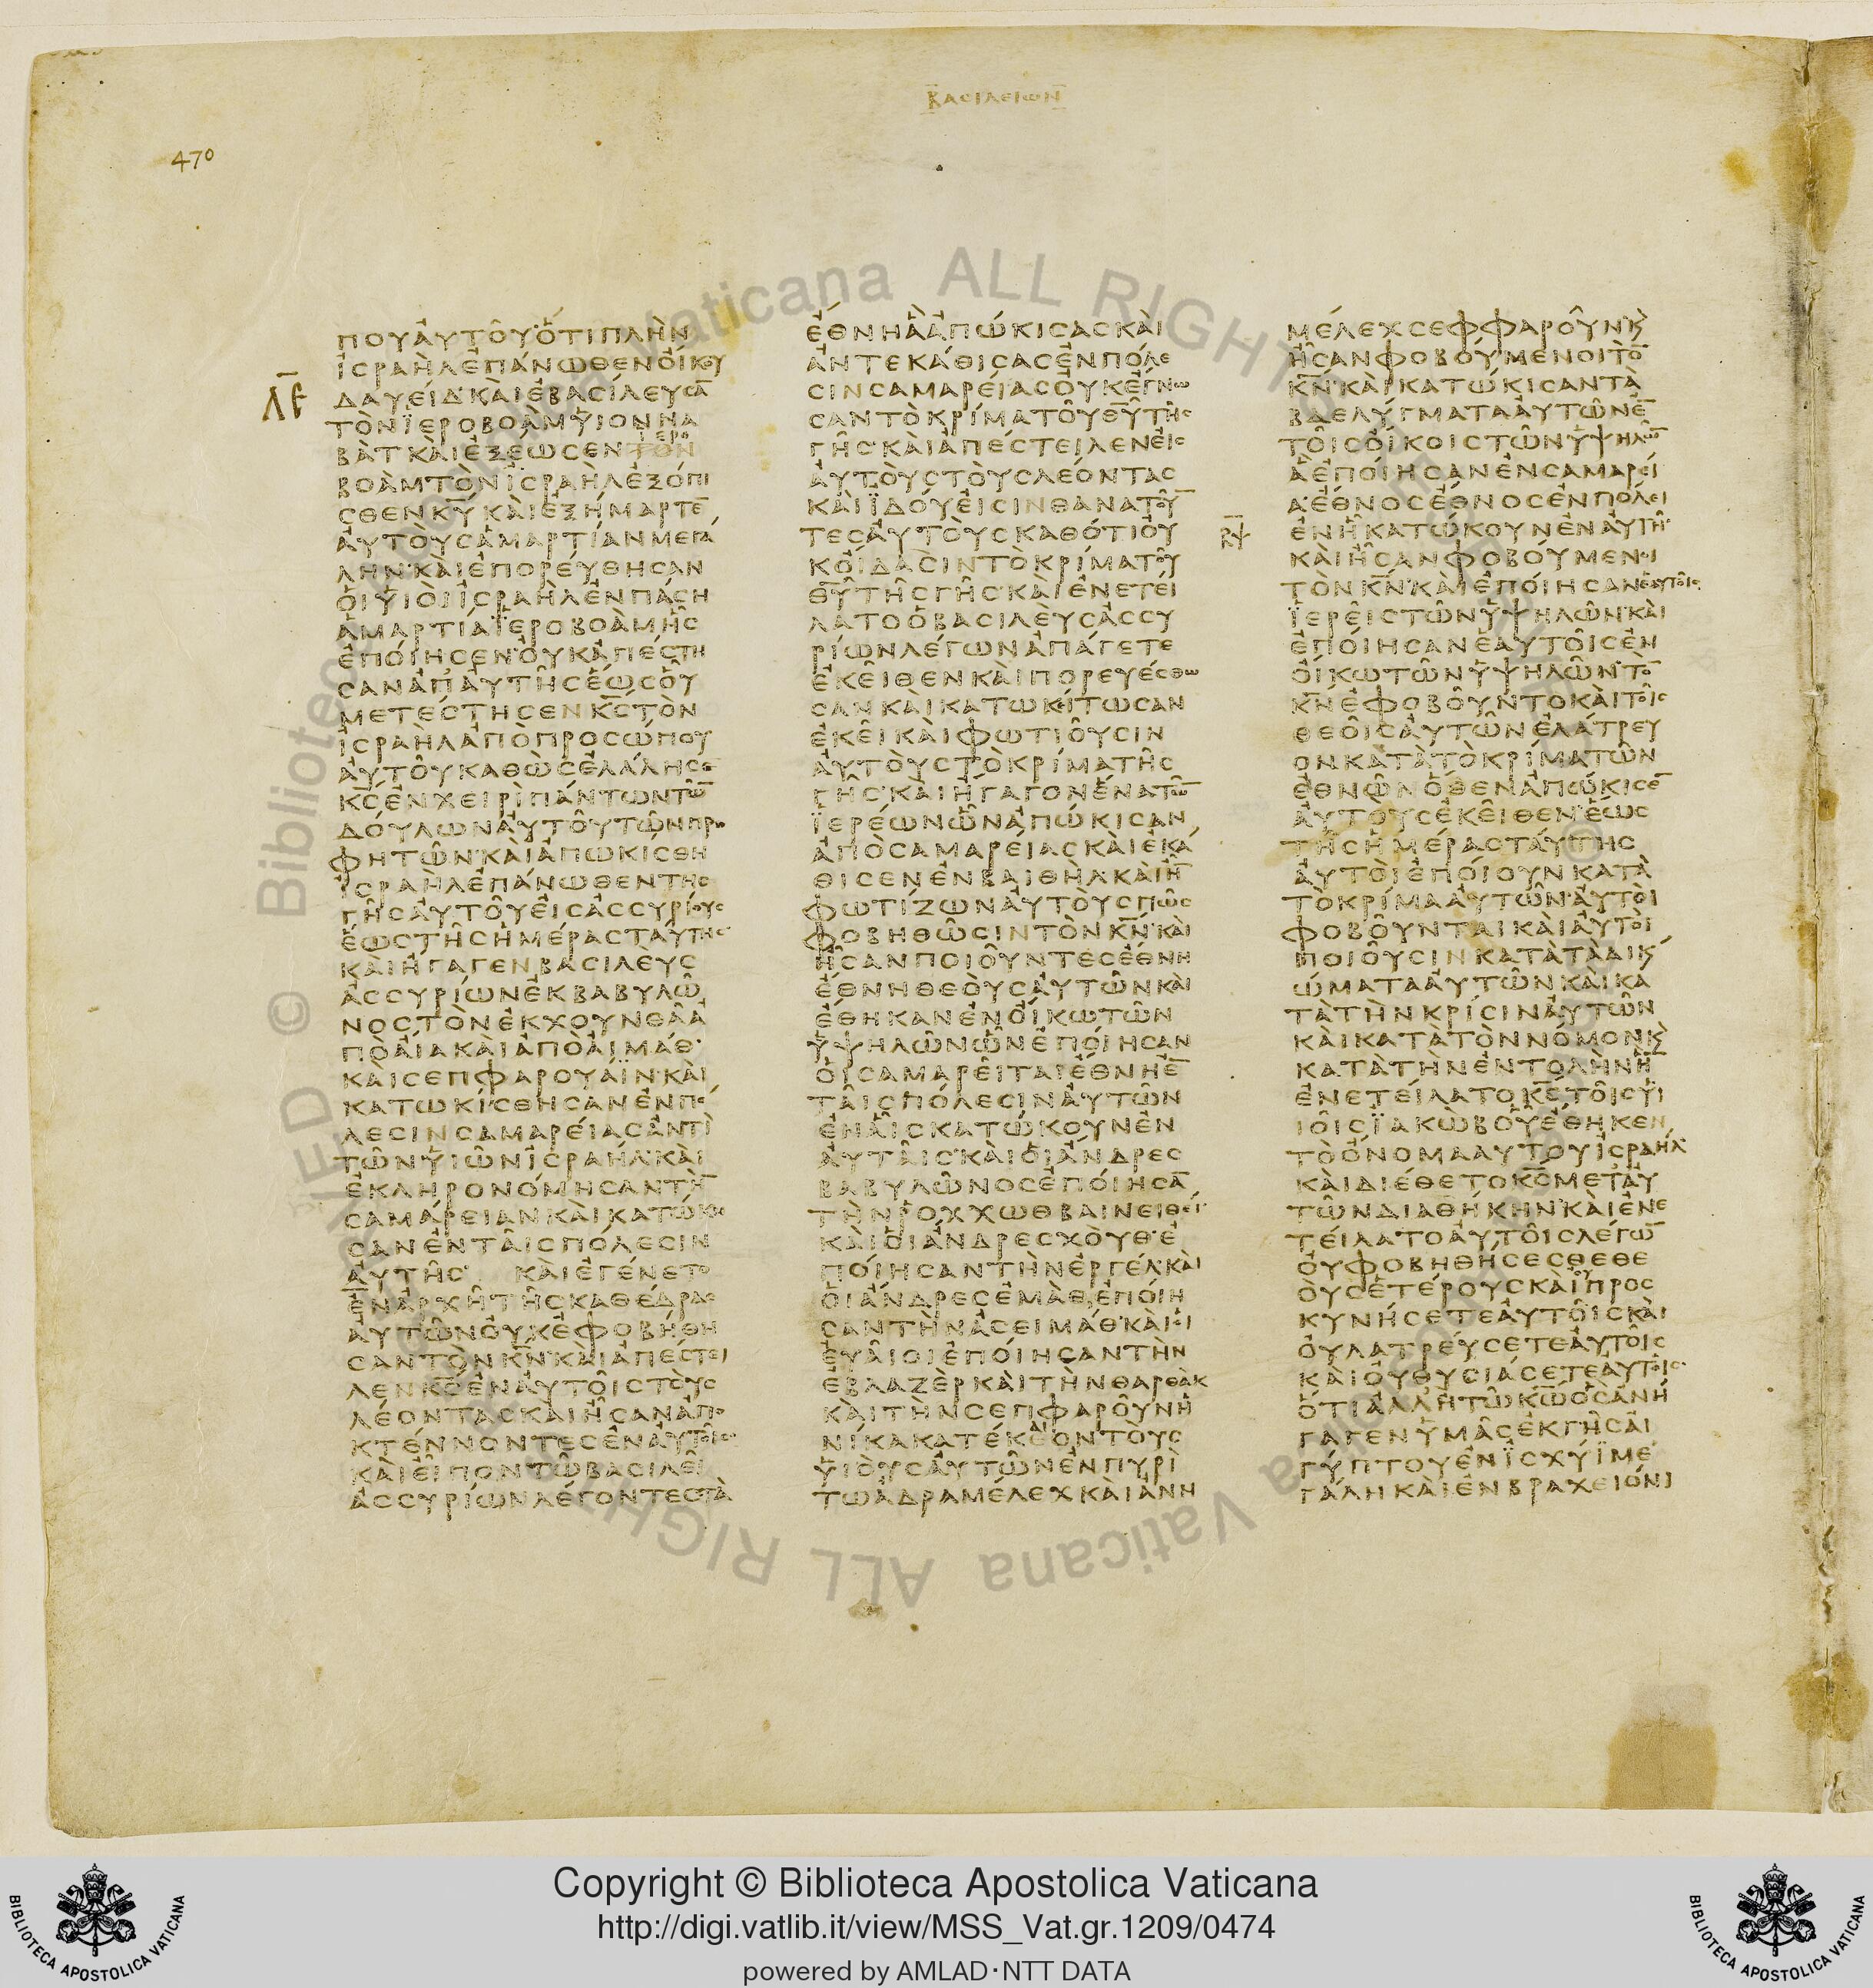 ΒΑΣΙΛΕΙΩΝ
470
ΠΟΥΑΥΤΟΥΟΤΙΠΛΗΝ
ΙΣΡΑΗΛΕΠΑΝΩΘΕΝΟΙΚΟΥ
ΛΕ
ΔΑΥΕΙΔΚΑΙΕΒΑΣΙΛΕΥΣΑ̅
ΤΟΝΪΕΡΟΒΟΑΜΥΙΟΝΝΑ
ΒΑΤΚΑΙΕΞΕΩΣΕΝ
ΒΟΑΜΤΟΝΙΣΡΑΗΛΕΞΟΠΙ
ΣΘΕΝΚ̅Υ̅ΚΑΙΕΞΗΜΑΡΤΕ̅
ΑΥΤΟΥΣΑΜΑΡΤΙΑΝΜΕΓΑ
ΛΗΝΚΑΙΕΠΟΡΕΥΘΗΣΑΝ
ΟΙΥΙΟΙΙΣΡΑΗΛΕΝΠΑΣΗ
ΑΜΑΡΤΙΑΪΕΡΟΒΟΑΜΗΣ
ΕΠΟΙΗΣΕΝΟΥΚΑΠΕΣΤΗ
ΣΑΝΑΠΑΥΤΗΣΕΩΣΟΥ
ΜΕΤΕΣΤΗΣΕΝΚ̅Σ̅ΤΟΝ
ΙΣΡΑΗΛΑΠΟΠΡΟΣΩΠΟΥ
ΑΥΤΟΥΚΑΘΩΣΕΛΑΛΗΣΕ
Κ̅Σ̅ΕΝΧΕΙΡΙΠΑΝΤΩΝΤΩ̅
ΔΟΥΛΩΝΑΥΤΟΥΤΩΝΠΡΟ
ΦΗΤΩΝΚΑΙΑΠΩΚΙΣΘΗ
ΙΣΡΑΗΛΕΠΑΝΩΘΕΝΤΗΣ
ΓΗΣΑΥΤΟΥΕΙΣΑΣΣΥΡΙΟΥΣ
ΕΩΣΤΗΣΗΜΕΡΑΣΤΑΥΤΗΣ
ΚΑΙΗΓΑΓΕΝΒΑΣΙΛΕΥΣ
ΑΣΣΥΡΙΩΝΕΚΒΑΒΥΛΩ
ΝΟΣΤΟΝΕΚΧΟΥΝΘΑΑ
ΠΟΑΙΑΚΑΙΑΠΟΑΙΜΑΘ
ΚΑΙΣΕΠΦΑΡΟΥΑΪΝΚΑΙ
ΚΑΤΩΚΙΣΘΗΣΑΝΕΝΠΟ
ΛΕΣΙΝΣΑΜΑΡΕΙΑΣΑΝΤΙ
ΤΩΝΥΙΩΝΙΣΡΑΗΛΚΑΙ
ΕΚΛΗΡΟΝΟΜΗΣΑΝΤΗ̅
ΣΑΜΑΡΕΙΑΝΚΑΙΚΑΤΩΚΗ
ΣΑΝΕΝΤΑΙΣΠΟΛΕΣΙΝ
ΑΥΤΗΣ ΚΑΙΕΓΕΝΕΤΟ
ΕΝΑΡΧΗΤΗΣΚΑΘΕΔΡΑΣ
ΑΥΤΩΝΟΥΚΕΦΟΒΗΘΗ
ΣΑΝΤΟΝΚ̅Ν̅ΚΑΙΑΠΕΣΤΕΙ
ΛΕΝΚ̅Σ̅ΕΝΑΥΤΟΙΣΤΟΥΣ
ΛΕΟΝΤΑΣΚΑΙΗΣΑΝΑΠΟ
ΚΤΕΝΝΟΝΤΕΣΕΝΑΥΤΟΙΣ
ΚΑΙΕΙΠΟΝΤΩΒΑΣΙΛΕΙ
ΑΣΣΥΡΙΩΝΛΕΓΟΝΤΕΣΤΑ
ΕΘΝΗΑΑΠΩΚΙΣΑΣΚΑΙ
ΑΝΤΕΚΑΘΙΣΑΣΕΝΠΟΛΕ
ΣΙΝΣΑΜΑΡΕΙΑΣΟΥΚΕΓΝΩ
ΣΑΝΤΟΚΡΙΜΑΤΟΥΘ̅Υ̅ΤΗΣ
ΓΗΣΚΑΙΑΠΕΣΤΕΙΛΕΝΕΙΣ
ΑΥΤΟΥΣΤΟΥΣΛΕΟΝΤΑΣ
ΚΑΙΪΔΟΥΕΙΣΙΝΘΑΝΑΤΟΥ̅
ΤΕΣΑΥΤΟΥΣΚΑΘΟΤΙΟΥ
ΚΟΙΔΑΣΙΝΤΟΚΡΙΜΑΤΟΥ
Θ̅Υ̅ΤΗΣΓΗΣΚΑΙΕΝΕΤΕΙ
ΛΑΤΟΟΒΑΣΙΛΕΥΣΑΣΣΥ
ΡΙΩΝΛΕΓΩΝΑΠΑΓΕΤΕ
ΕΚΕΙΘΕΝΚΑΙΠΟΡΕΥΕΣΘΩ
ΣΑΝΚΑΙΚΑΤΩΚΙΤΩΣΑΝ
ΕΚΕΙΚΑΙΦΩΤΙΟΥΣΙΝ
ΑΥΤΟΥΣΤΟΚΡΙΜΑΤΗΣ
ΓΗΣΚΑΙΗΓΑΓΟΝΕΝΑΤΩ̅
ΪΕΡΕΩΝΩΝΑΠΩΚΙΣΑΝ
ΑΠΟΣΑΜΑΡΕΙΑΣΚΑΙΕΚΑ
ΘΙΣΕΝΕΝΒΑΙΘΗΛΚΑΙΗ̅
ΦΩΤΙΖΩΝΑΥΤΟΥΣΠΩΣ
ΦΟΒΗΘΩΣΙΝΤΟΝΚ̅Ν̅ΚΑΙ
ΗΣΑΝΠΟΙΟΥΝΤΕΣΕΘΝΗ
ΕΘΝΗΘΕΟΥΣΑΥΤΩΝΚΑΙ
ΕΘΗΚΑΝΕΝΟΙΚΩΤΩΝ
ΥΨΗΛΩΝΩΝΕΠΟΙΗΣΑΝ
ΟΙΣΑΜΑΡΕΙΤΑΙΕΘΝΗΕ̅
ΤΑΙΣΠΟΛΕΣΙΝΑΥΤΩΝ
ΕΝΑΙΣΚΑΤΩΚΟΥΝΕΝ
ΑΥΤΑΙΣΚΑΙΟΙΑΝΔΡΕΣ
ΒΑΒΥΛΩΝΟΣΕΠΟΙΗΣΑ̅
ΤΗΝΡΟΧΧΩΘΒΑΙΝΕΙΘΕΙ
ΚΑΙΟΙΑΝΔΡΕΣΧΟΥΘΕ
ΠΟΙΗΣΑΝΤΗΝΕΡΓΕΛΚΑΙ
ΟΙΑΝΔΡΕΣΕΜΑΘΕΠΟΙΗ
ΣΑΝΤΗΝΑΣΕΙΜΑΘΚΑΙΟΙ
ΕΥΑΙΟΙΕΠΟΙΗΣΑΝΤΗΝ
ΕΒΛΑΖΕΡΚΑΙΤΗΝΘΑΡΘΑΚ
ΚΑΙΤΗΝΣΕΠΦΑΡΟΥΝΗ
ΝΙΚΑΚΑΤΕΚΑΙΟΝΤΟΥΣ
ΥΙΟΥΣΑΥΤΩΝΕΝΠΥΡΙ
ΤΩΑΔΡΑΜΕΛΕΧΚΑΙΑΝΗ
ΜΕΛΕΧΣΕΦΦΑΡΟΥΝϏ
ΗΣΑΝΦΟΒΟΥΜΕΝΟΙΤΟ̅
Κ̅Ν̅ΚΑΙΚΑΤΩΚΙΣΑΝΤΑ
ΒΔΕΛΥΓΜΑΤΑΑΥΤΩΝΕ̅
ΤΟΙΣΟΙΚΟΙΣΤΩΝΥΨΗΛΩ̅
ΑΕΠΟΙΗΣΑΝΕΝΣΑΜΑΡΕΙ
ΑΕΘΝΟΣΕΘΝΟΣΕΝΠΟΛΕΙ
ΕΝΗΚΑΤΩΚΟΥΝΕΝΑΥΤΗ
ΚΑΙΗΣΑΝΦΟΒΟΥΜΕΝΟΙ
ΤΟΝΚ̅Ν̅ΚΑΙΕΠΟΙΗΣΑΝΕΑΥΤΟΙΣ
ΪΕΡΕΙΣΤΩΝΥΨΗΛΩΝΚΑΙ
ΕΠΟΙΗΣΑΝΕΑΥΤΟΙΣΕΝ
ΟΙΚΩΤΩΝΥΨΗΛΩΝΤΟ̅
Κ̅Ν̅ΕΦΟΒΟΥΝΤΟΚΑΙΤΟΙΣ
ΘΕΟΙΣΑΥΤΩΝΕΛΑΤΡΕΥ
ΟΝΚΑΤΑΤΟΚΡΙΜΑΤΩΝ
ΕΘΝΩΝΟΘΕΝΑΠΩΚΙΣΕ̅
ΑΥΤΟΥΣΕΚΕΙΘΕΝΕΩΣ
ΤΗΣΗΜΕΡΑΣΤΑΥΤΗΣ
ΑΥΤΟΙΕΠΟΙΟΥΝΚΑΤΑ
ΤΟΚΡΙΜΑΑΥΤΩΝΑΥΤΟΙ
ΦΟΒΟΥΝΤΑΙΚΑΙΑΥΤΟΙ
ΠΟΙΟΥΣΙΝΚΑΤΑΤΑΔΙΚΑΙ
ΩΜΑΤΑΑΥΤΩΝΚΑΙΚΑ
ΤΑΤΗΝΚΡΙΣΙΝΑΥΤΩΝ
ΚΑΙΚΑΤΑΤΟΝΝΟΜΟΝϏ
ΚΑΤΑΤΗΝΕΝΤΟΛΗΝΗ̅
ΕΝΕΤΕΙΛΑΤΟΚ̅Σ̅ΤΟΙΣΥΙ
ΙΟΙΣΪΑΚΩΒΟΥΕΘΗΚΕΝ
ΤΟΟΝΟΜΑΑΥΤΟΥΙΣΡΑΗΛ
ΚΑΙΔΙΕΘΕΤΟΚ̅Σ̅ΜΕΤΑΥ
ΤΩΝΔΙΑΘΗΚΗΝΚΑΙΕΝΕ
ΤΕΙΛΑΤΟΑΥΤΟΙΣΛΕΓΩ̅
ΟΥΦΟΒΗΘΗΣΕΣΘΕΘΕ
ΟΥΣΕΤΕΡΟΥΣΚΑΙΟΥΠΡΟΣ
ΚΥΝΗΣΕΤΕΑΥΤΟΙΣΚΑΙ
ΟΥΛΑΤΡΕΥΣΕΤΕΑΥΤΟΙΣ
ΚΑΙΟΥΘΥΣΙΑΣΕΤΕΑΥΤΟΙΣ
ΟΤΙΑΛΛΗΤΩΚ̅Ω̅ΟΣΑΝΗ
ΓΑΓΕΝΥΜΑΣΕΚΓΗΣΑΙ
ΓΥΠΤΟΥΕΝΪΣΧΥΪΜΕ
ΓΑΛΗΚΑΙΕΝΒΡΑΧΕΙΟΝΙ
Copyright © Biblioteca Apostolica Vaticana
http://digi.vatlib.it/view/MSS_Vat.gr.1209/0474
powered by AMLAD·NTT DATA
BIBLIOTECA APOSTOLICA VATICANA
BIBLIOTECA APOSTOLICA VATICANA